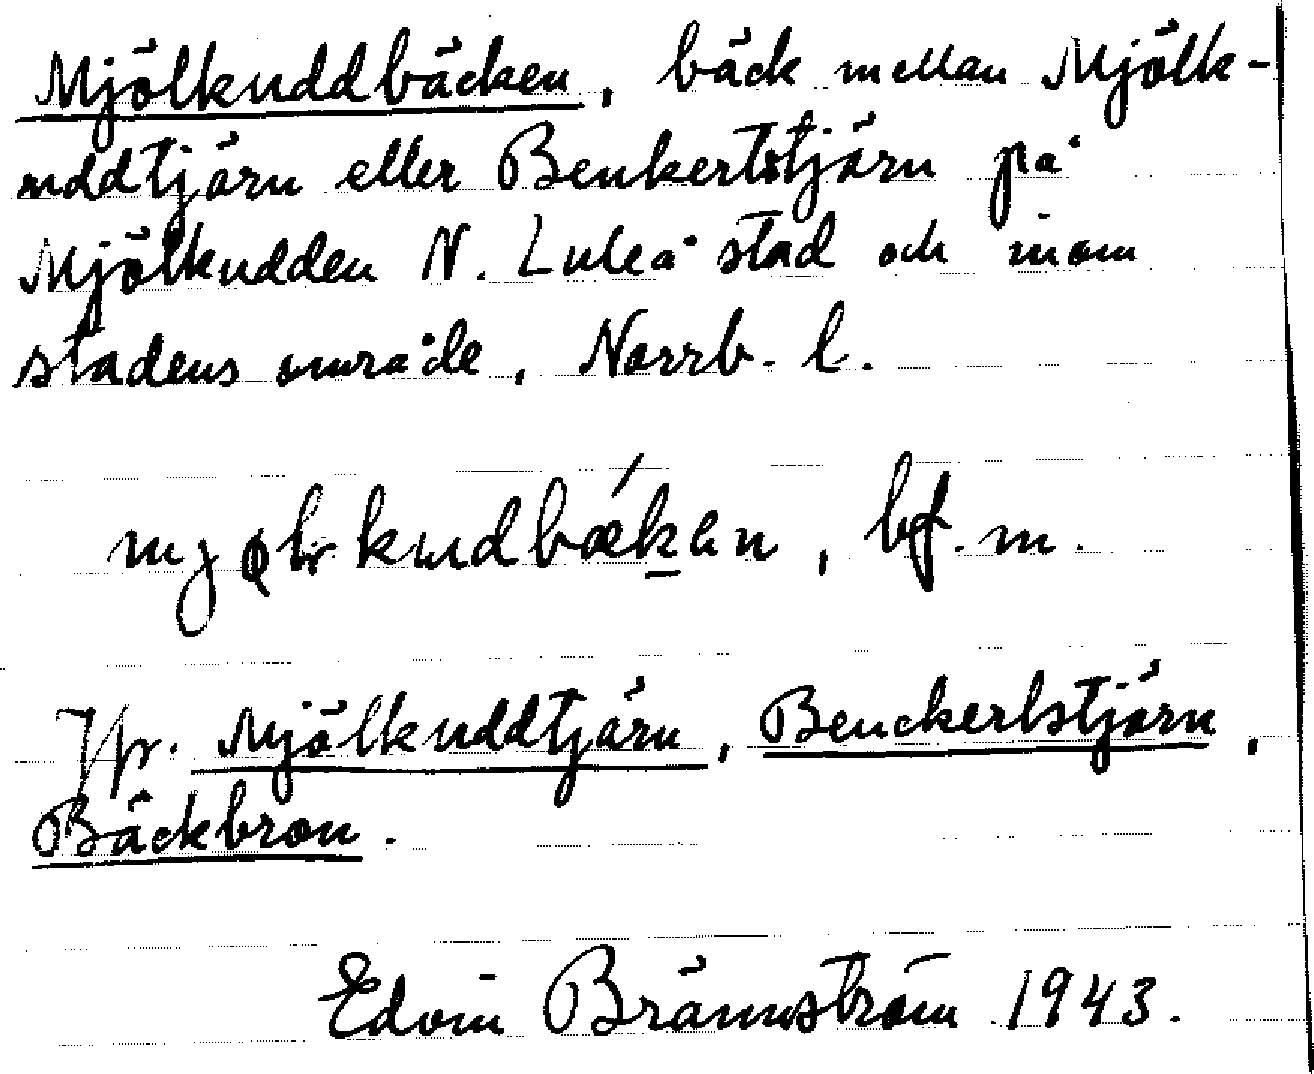 Mjölkuddbäcken, bäck mellan Mjölk-
uddtjärn eller Benkertstjärn på
Mjölkudden N. Luleå stad och inom
stadens område, Norrb. l.
bf. m.
Jfr. Mjölkuddtjärn, Benckertstjärn,
Bäckbron.
Edvin Brännström 1943.